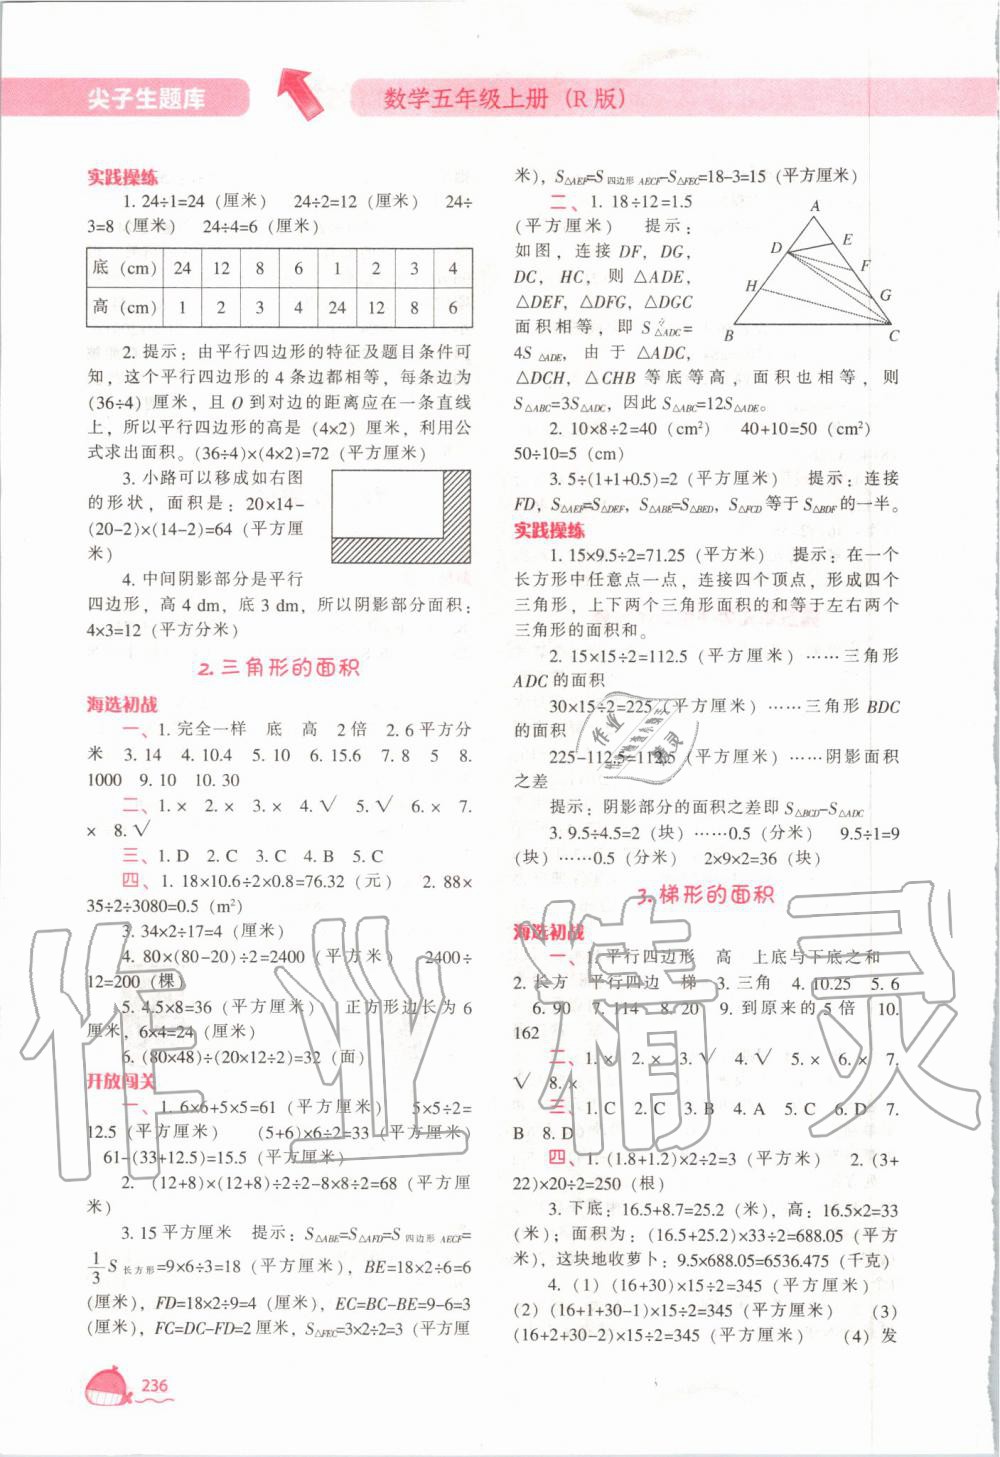 尖子生题库
数学五年级上册（R 版）
实践操练
1. 24÷1=24（厘米） 24÷2=12（厘米） 24÷
3=8（厘米） 24÷4=6（厘米）
底（cm） 24 12 8 6 1 2 3 4
高（cm） 1 2 3 4 24 12 8 6
2. 提示：由平行四边形的特征及题目条件可
知，这个平行四边形的 4 条边都相等，每条边为
(36÷4）厘米，且 O 到对边的距离应在一条直线
上，所以平行四边形的高是（4×2）厘米，利用公
式求出面积。(36÷4)×(4×2)=72（平方厘米）
3. 小路可以移成如右图
的形状，面积是：20×14−
(20−2)×(14−2)=64（平方厘
米）
4. 中间阴影部分是平行
四边形，高 4 dm，底 3 dm，所以阴影部分面积：
4×3=12（平方分米）
2. 三角形的面积
海选初战
一、1. 完全一样 底 高 2 倍 2. 6 平方分
米 3. 14 4. 10.4 5. 10 6. 15.6 7. 8 5 8.
1000 9. 10 10. 30
二、1. × 2. × 3. × 4. √ 5. √ 6. × 7.
× 8. √
三、1. D 2. C 3. C 4. B 5. C
四、1. 18×10.6÷2×0.8=76.32（元） 2. 88×
35÷2÷3080=0.5（m²）
3. 34×2÷17=4（厘米）
4. 80×(80−20)÷2=2400（平方米） 2400÷
12=200（棵）
5. 4.5×8=36（平方厘米） 正方形边长为 6
厘米，6×4=24（厘米）
6. (80×48)÷(20×12÷2)=32（面）
开放闯关
一、1. 6×6+5×5=61（平方厘米） 5×5÷2=
12.5（平方厘米） (5+6)×6÷2=33（平方厘米）
61−(33+12.5)=15.5（平方厘米）
2. (12+8)×(12+8)÷2÷2−8×8÷2=68（平方厘
米）
3. 15 平方厘米 提示：S△ABE=S△AFD=S 四边形 AECF=
1/3 S 长方形=9×6÷3=18（平方厘米），BE=18×2÷6=6
(厘米），FD=18×2÷9=4（厘米），EC=BC−BE=9−6=3
(厘米），FC=DC−FD=2厘米，S△FEC=3×2÷2=3（平方厘
236
米），S△AEF=S 四边形 AECF−S△FEC=18−3=15（平方厘米）
二、1. 18÷12=1.5
(平方厘米） 提示：
如图，连接 DF，DG，
DC，HC，则 △ADE，
△DEF，△DFG，△DGC
面积相等，即 S△ADC=
4S △ADE，由于 △ADC，
△DCH，△CHB 等底等高，面积也相等，则
S△ABC=3S△ADC，因此 S△ABC=12S△ADE。
A
D
E
F
H
G
B
C
2. 10×8÷2=40（cm²） 40+10=50（cm²）
50÷10=5（cm）
3. 5÷(1+1+0.5)=2（平方厘米） 提示：连接
FD，S△AEF=S△DEF，S△ABE=S△BED，S△FCD 等于 S△BDF 的一半。
实践操练
1. 15×9.5÷2=71.25（平方米） 提示：在一个
长方形中任意点一点，连接四个顶点，形成四个
三角形，上下两个三角形面积的和等于左右两个
三角形的面积和。
2. 15×15÷2=112.5（平方厘米）……三角形
ADC 的面积
30×15÷2=225（平方厘米）……三角形 BDC
的面积
225−112.5=112.5（平方厘米）……阴影面积
之差
提示：阴影部分的面积之差即 S△BCD−S△ADC
3. 9.5÷4.5=2（块）……0.5（分米） 9.5÷1=9
(块）……0.5（分米） 2×9×2=36（块）
3. 梯形的面积
海选初战
一、1. 平行四边形 高 上底与下底之和
2. 长方 平行四边 梯 3. 三角 4. 10.25 5. 6
6. 90 7. 114 8. 20 9. 到原来的 5 倍 10.
162
二、1. × 2. × 3. √ 4. √ 5. × 6. × 7.
√ 8. ×
三、1. C 2. C 3. B 4. A 5. C 6. D 7.
B 8. D
四、1. (1.8+1.2)×2÷2=3（平方米） 2. (3+
22)×20÷2=250（根）
3. 下底：16.5+8.7=25.2（米），高：16.5×2=33
(米）；面积为：(16.5+25.2)×33÷2=688.05（平方
米），这块地收萝卜：9.5×688.05=6536.475（千克）
4. (1) (16+30)×15÷2=345（平方厘米）
(2) (16+1+30−1)×15÷2=345（平方厘米） (3)
(16+2+30−2)×15÷2=345（平方厘米） (4) 发
作业精灵
作业
精灵